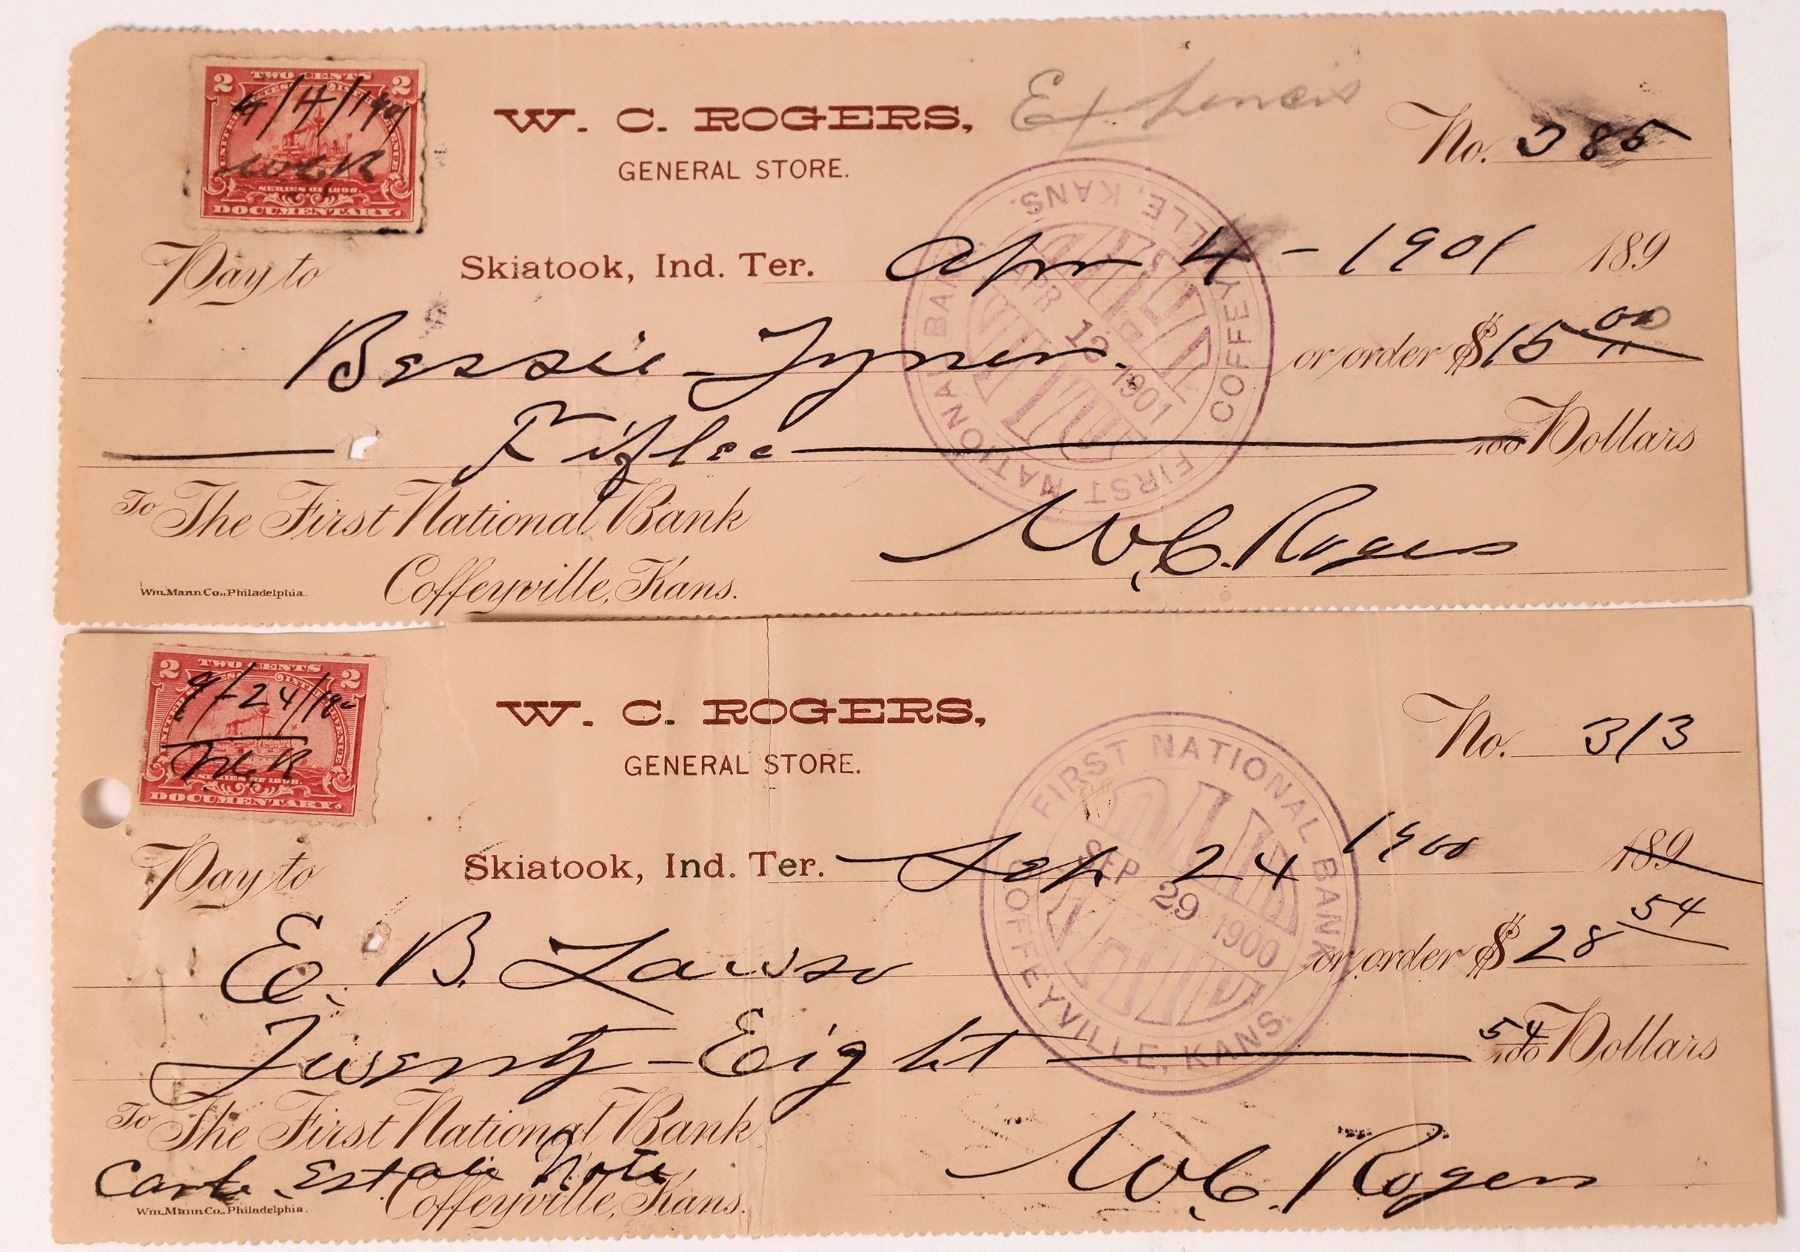 2 TWO CENTS 2
4/4/1901
WCR
SERIES OF 1898.
DOCUMENTARY.
W. C. ROGERS,
GENERAL STORE.
No. 385
Skiatook, Ind. Ter. Apr 4 - 1901 189
Pay to
Bessie Tyner or order $15 00
Fiftee 100 Dollars
FIRST NATIONAL BANK COFFEYVILLE, KANS.
PAID
APR 13 1901
To The First National Bank
Coffeyville, Kans.
W.C. Rogers
Wm. Mann Co., Philadelphia.
2 TWO CENTS 2
9/24/190
W.C.R
SERIES OF 1898.
DOCUMENTARY.
W. C. ROGERS,
GENERAL STORE.
No. 313
Skiatook, Ind. Ter. Sep 24 1900 189
Pay to
E. B. Lawso or order $28 54
Twenty-Eight 54 100 Dollars
FIRST NATIONAL BANK COFFEYVILLE, KANS.
PAID
SEP 29 1900
To The First National Bank
Estate Note
Coffeyville, Kans.
W.C. Rogers
Wm. Mann Co., Philadelphia.